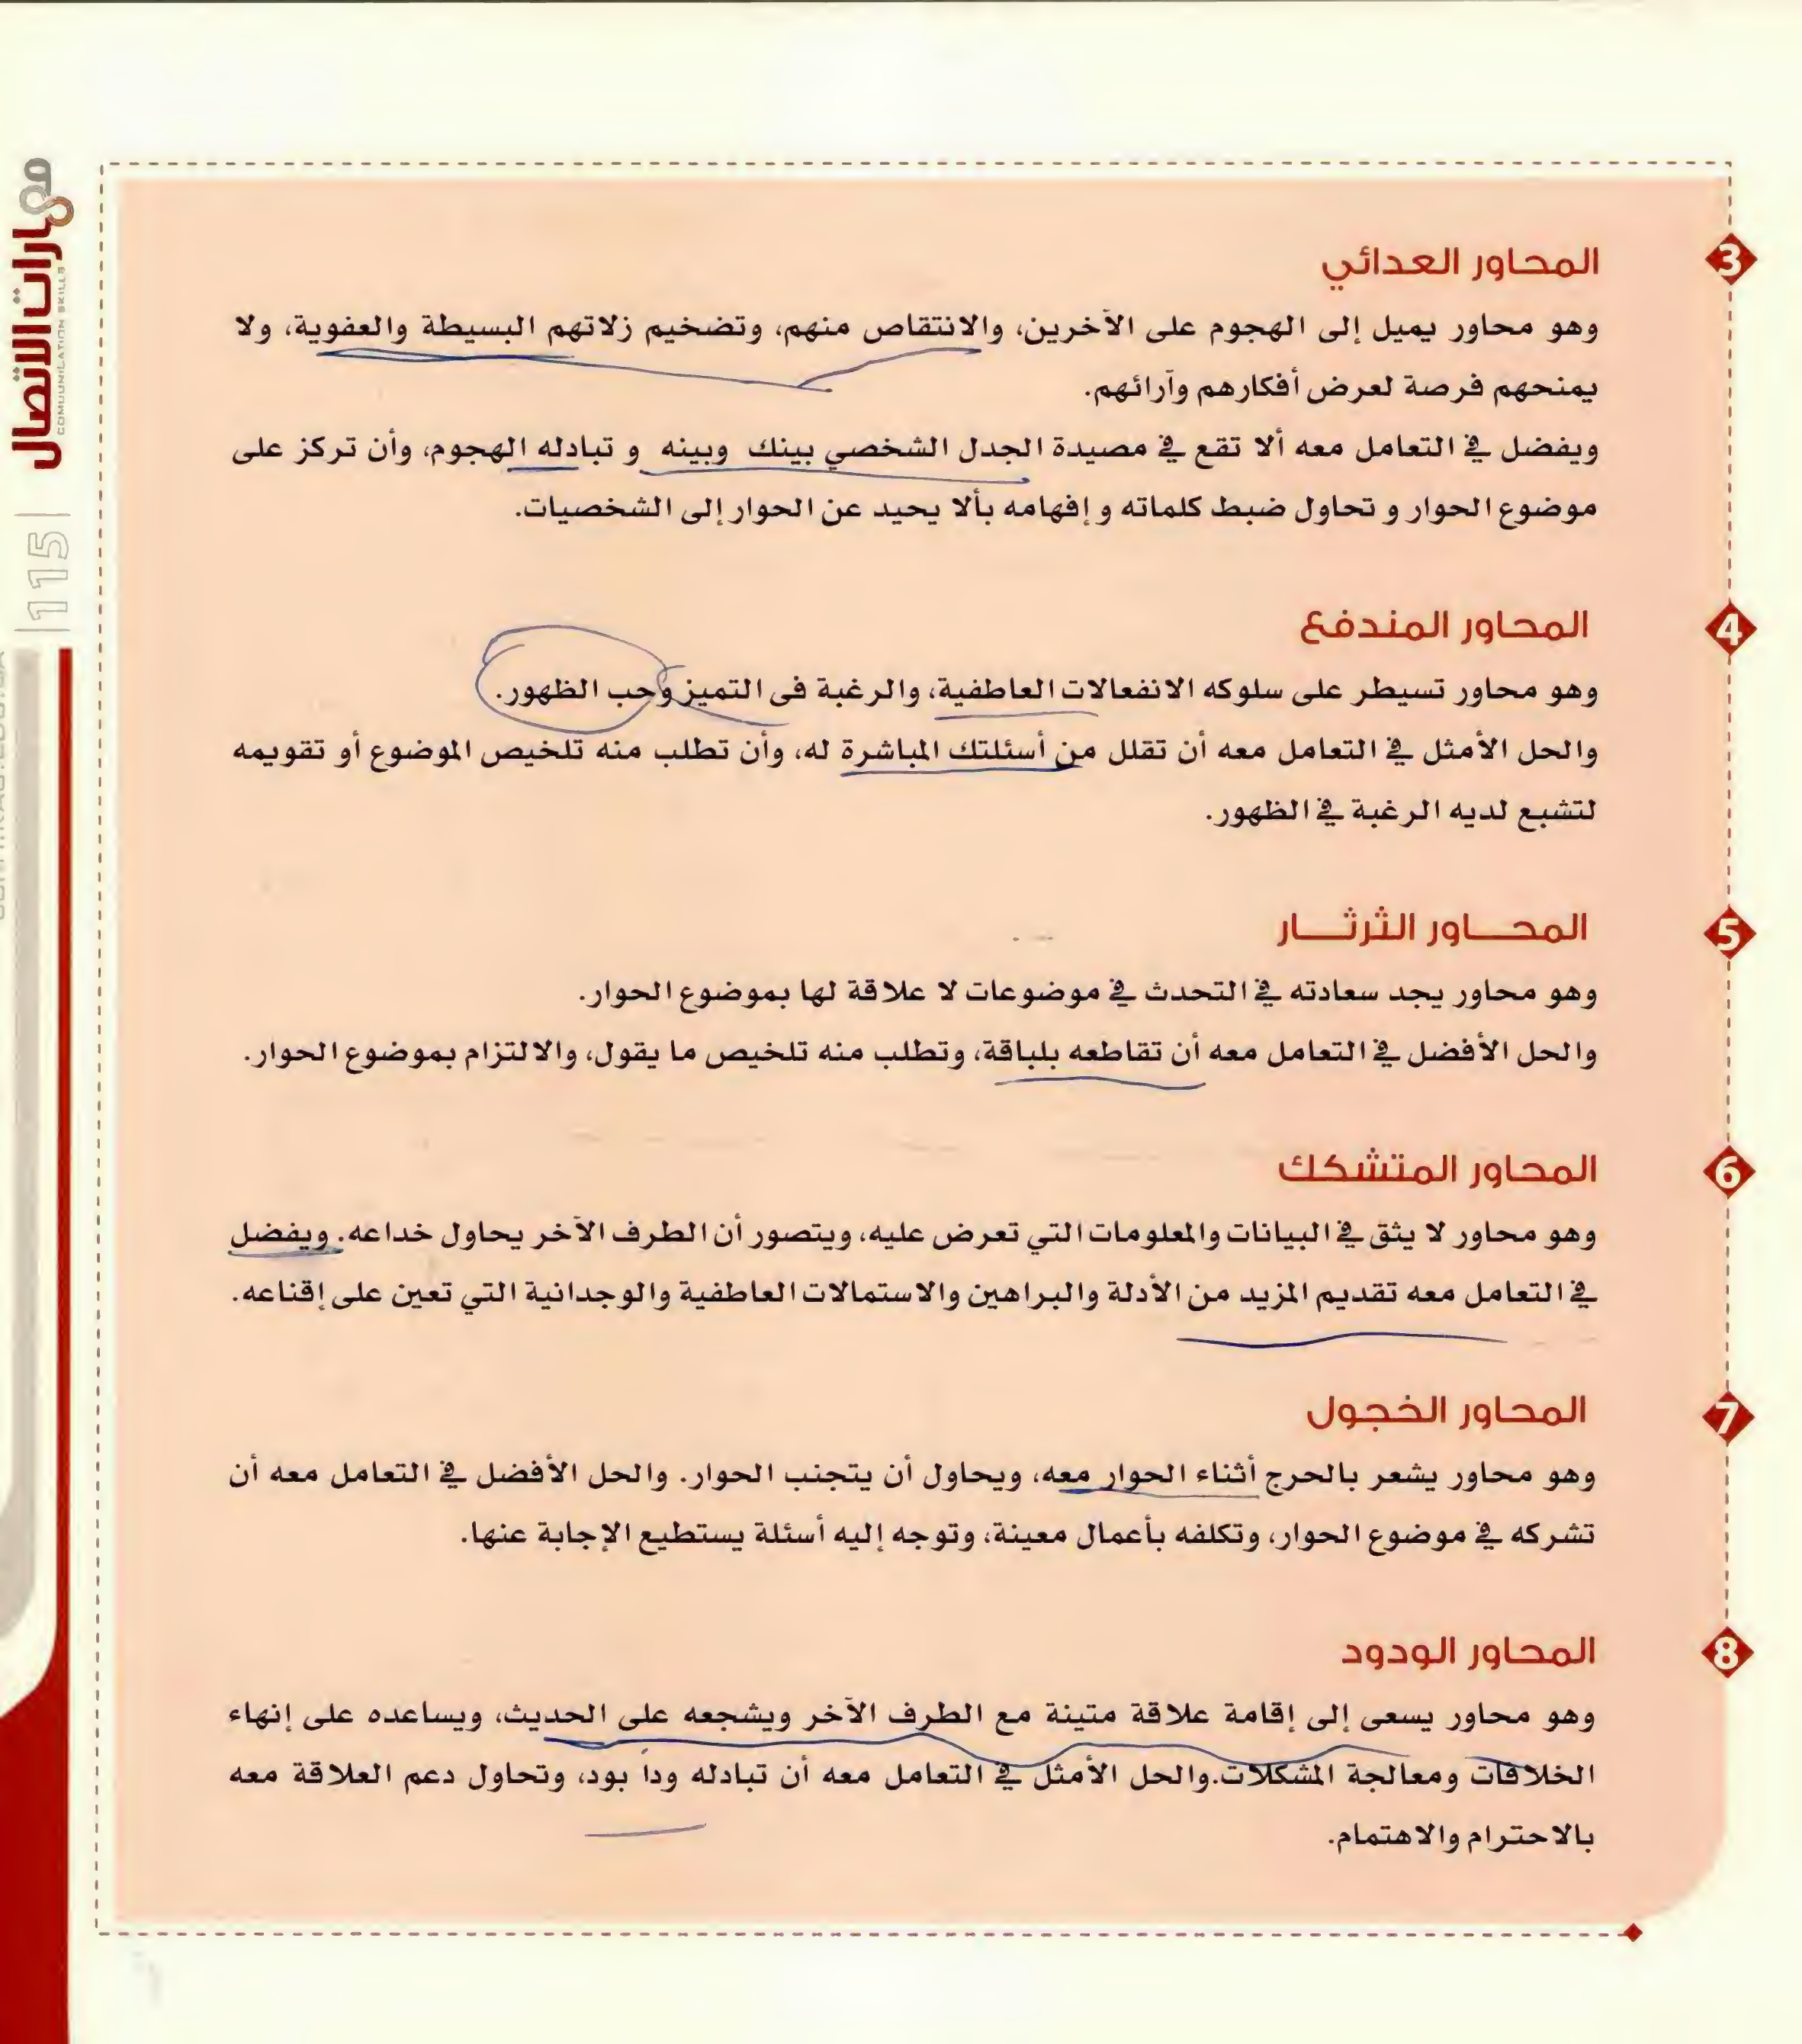 3
المحاور العدائي
وهو محاور يميل إلى الهجوم على الآخرين، والانتقاص منهم، وتضخيم زلاتهم البسيطة والعفوية، ولا
يمنحهم فرصة لعرض أفكارهم وآرائهم.
ويفضل في التعامل معه ألا تقع في مصيدة الجدل الشخصي بينك وبينه و تبادله الهجوم، وأن تركز على
موضوع الحوار و تحاول ضبط كلماته و إفهامه بألا يحيد عن الحوار إلى الشخصيات.
4
المحاور المندفع
وهو محاور تسيطر على سلوكه الانفعالات العاطفية، والرغبة فى التميز وحب الظهور.
والحل الأمثل في التعامل معه أن تقلل من أسئلتك المباشرة له، وأن تطلب منه تلخيص الموضوع أو تقويمه
لتشبع لديه الرغبة في الظهور.
5
المحـــاور الثرثـــار
وهو محاور يجد سعادته في التحدث في موضوعات لا علاقة لها بموضوع الحوار.
والحل الأفضل في التعامل معه أن تقاطعه بلباقة، وتطلب منه تلخيص ما يقول، والالتزام بموضوع الحوار.
6
المحاور المتشكك
وهو محاور لا يثق في البيانات والمعلومات التي تعرض عليه، ويتصور أن الطرف الآخر يحاول خداعه. ويفضل
في التعامل معه تقديم المزيد من الأدلة والبراهين والاستمالات العاطفية والوجدانية التي تعين على إقناعه.
7
المحاور الخجول
وهو محاور يشعر بالحرج أثناء الحوار معه، ويحاول أن يتجنب الحوار. والحل الأفضل في التعامل معه أن
تشركه في موضوع الحوار، وتكلفه بأعمال معينة، وتوجه إليه أسئلة يستطيع الإجابة عنها.
8
المحاور الودود
وهو محاور يسعى إلى إقامة علاقة متينة مع الطرف الآخر ويشجعه على الحديث، ويساعده على إنهاء
الخلافات ومعالجة المشكلات.والحل الأمثل في التعامل معه أن تبادله وداً بود، وتحاول دعم العلاقة معه
بالاحترام والاهتمام.
مهارات الاتصال
COMUUNILATION SKILLS
|115|